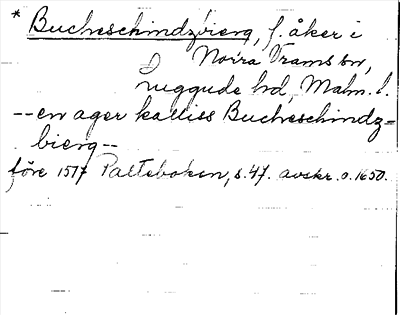 * Bucheschindzbierg, f. åker i
Norra Vrams sn,
Luggude hd, Malm. l.
-- en ager kalliss Bucheschindz=
bierg --
före 1517 Palteboken, s. 47. avskr. o. 1650.